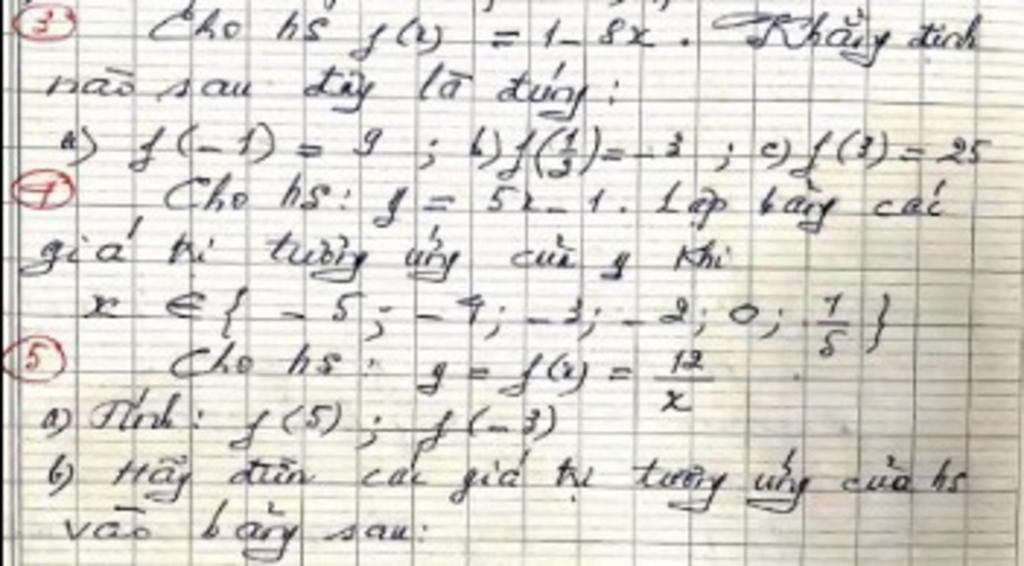 3 Cho hs f(x) = 1 - 8x. Khẳng định
nào sau đây là đúng:
a) f(-1) = 9 ; b) f(1/2) = -3 ; c) f(3) = 25
4 Cho hs: y = 5x - 1. Lập bảng các
giá trị tương ứng của y khi
x ∈ { -5; -4; -3; -2; 0; 1/5 }
5 Cho hs: y = f(x) = 12/x
a) Tính: f(5) ; f(-3)
b) Hãy điền các giá trị tương ứng của hs
vào bảng sau: